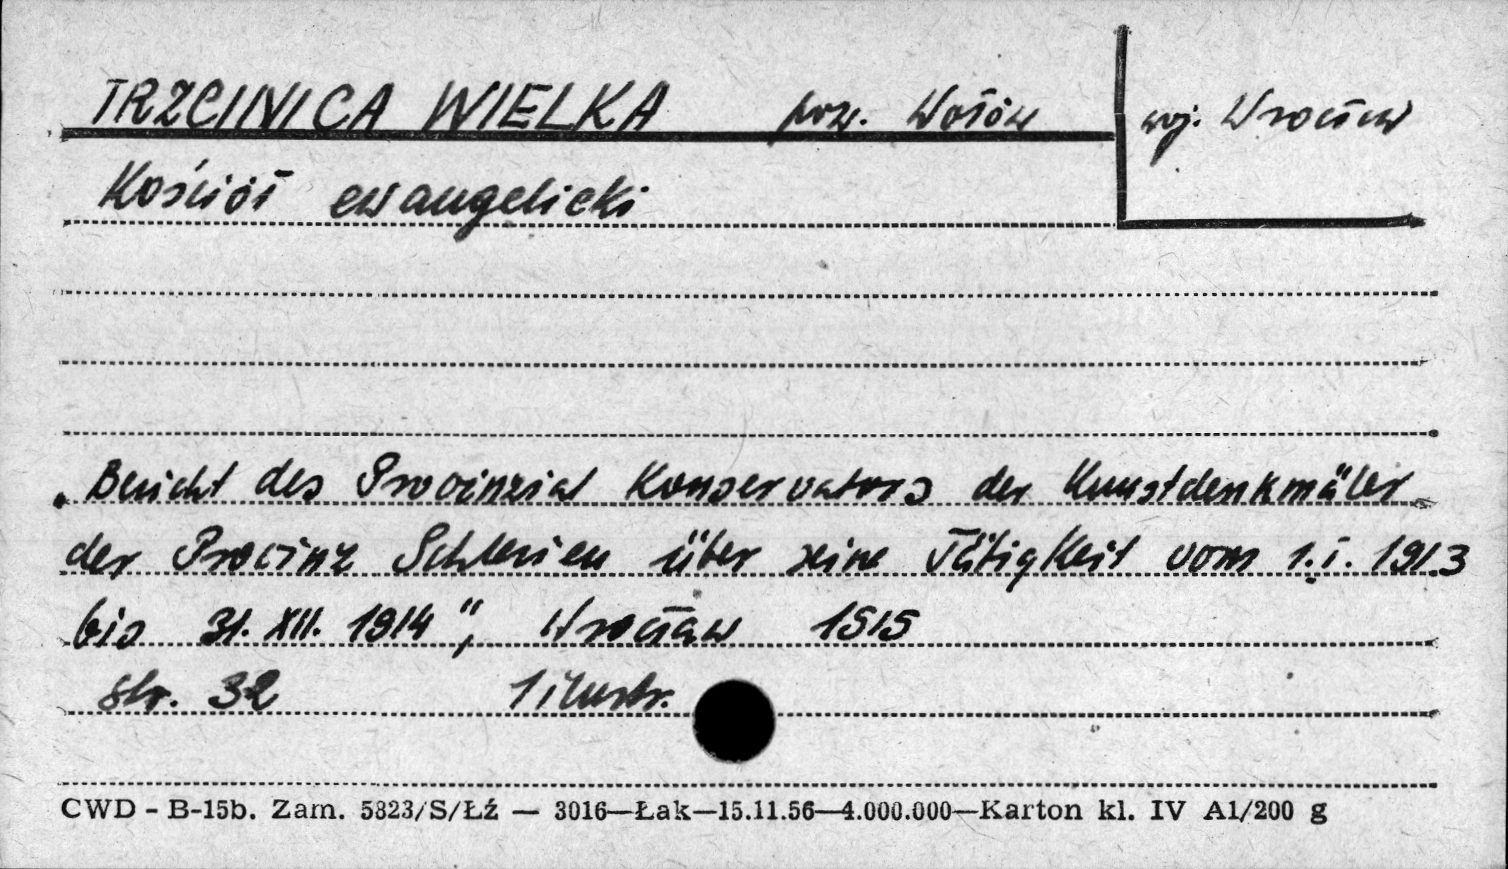 TRZCINICA WIELKA pow. Wołów woj. Wrocław
Kościół ewangelicki
„Bericht des Provinzial Konservators der Kunstdenkmäler
der Provinz Schlesien über seine Tätigkeit vom 1.I. 1913
bis 31. XII. 1914", Wrocław 1915
str. 32 1 ilustr.
CWD - B-15b. Zam. 5823/S/Łź — 3016—Łak—15.11.56—4.000.000—Karton kl. IV A1/200 g